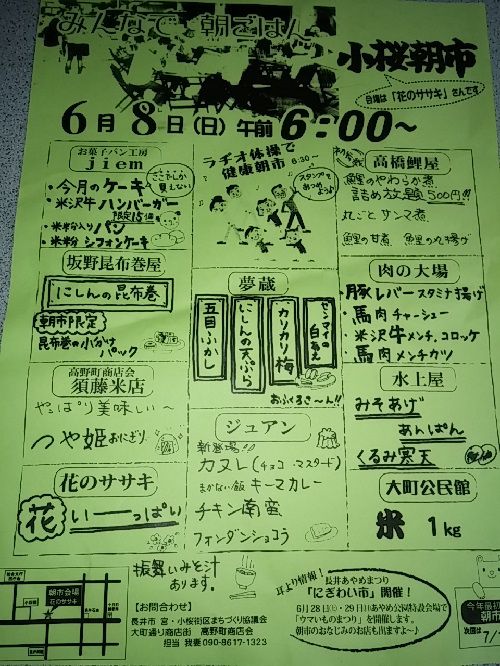 みんなで 朝ごはん
小桜朝市
目標は「花のササキ」さんです
6月8日(日)午前6:00〜
お菓子パン工房
jiem
・今月のケーキ
ここでしか
買えない
・米沢牛ハンバーガー
限定15個
・米粉入りパン
・米粉 シフォンケーキ
ラヂオ体操で
健康朝市
6:30〜
スタンプも
あつめよう
高橋鯉屋
鯉のやわらか煮
詰め放題 500円!!
丸ごとサンマ煮
鯉の甘煮 鯉の丸揚げ
坂野昆布巻屋
にしんの昆布巻
朝市限定
昆布巻の小かけ
パック
夢蔵
五目ふかし
にしんの天ぷら
カリカリ梅
ゼンマイの白あえ
おふくろさ〜ん!!
肉の大場
・豚レバースタミナ揚げ
・馬肉チャーシュー
・米沢牛メンチ、コロッケ
・馬肉メンチカツ
高野町商店会
須藤米店
やっぱり美味しい〜
つや姫おにぎり
ジュアン
新登場!!
カヌレ(チョコ・マスタード)
まかない飯 キーマカレー
チキン南蛮
フォンダンショコラ
水上屋
みそあげ
あんぱん
くるみ寒天
花のササキ
花 いーっぱい
大町公民館
米 1kg
朝市会場
花のササキ
振舞いみそ汁
あります。
【お問合わせ】
長井市 宮・小桜街区まちづくり協議会
大町通り商店街 高野町商店会
担当 我妻 090-8617-1323
耳より情報!
長井あやめまつり
「にぎわい市」開催!
6月28日(土)・29日(日)あやめ公園特設会場で
「ウマいものまつり」を開催します。
朝市のおなじみのお店も出ますよ〜♪
今年最初
朝市
次回は 7/